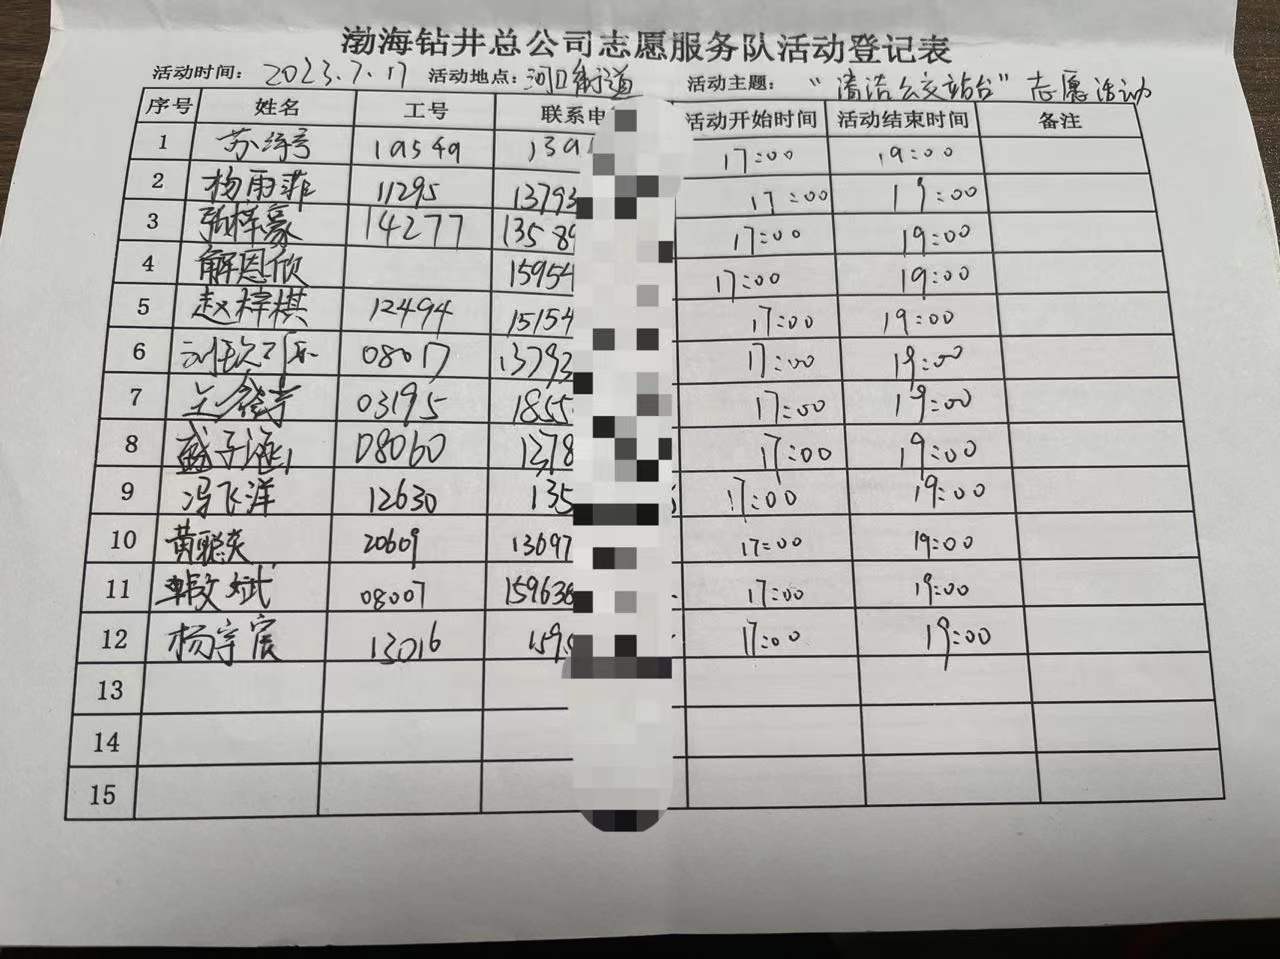 渤海钻井总公司志愿服务队活动登记表
活动时间: 2023.7.17 活动地点: 河口街道 活动主题: “清洁公交站台”志愿活动
序号 姓名 工号 联系电 活动开始时间 活动结束时间 备注
1 苏 19549 139 17:00 19:00
2 杨雨菲 11295 13793 17:00 19:00
3 张梓豪 14277 13589 17:00 19:00
4 解恩欣 15954 17:00 19:00
5 赵梓棋 12494 15154 17:00 19:00
6 刘 08017 13793 17:00 19:00
7 03195 1855 17:00 19:00
8 盛子涵 08060 1378 17:00 19:00
9 冯飞洋 12630 135 17:00 19:00
10 黄聪 20609 13697 17:00 19:00
11 韩文斌 08007 159638 17:00 19:00
12 杨宇宸 13016 159 17:00 19:00
13
14
15